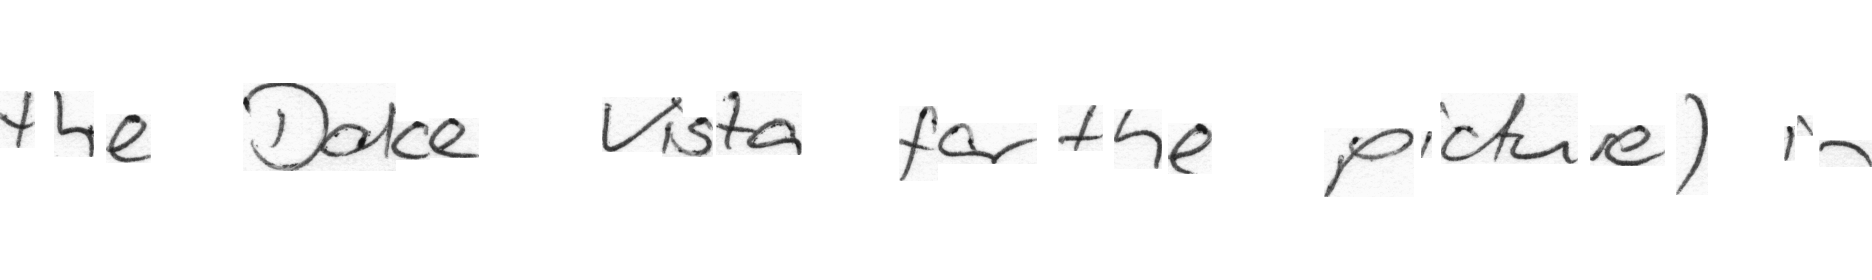 the Dolce Vista for the picture) in